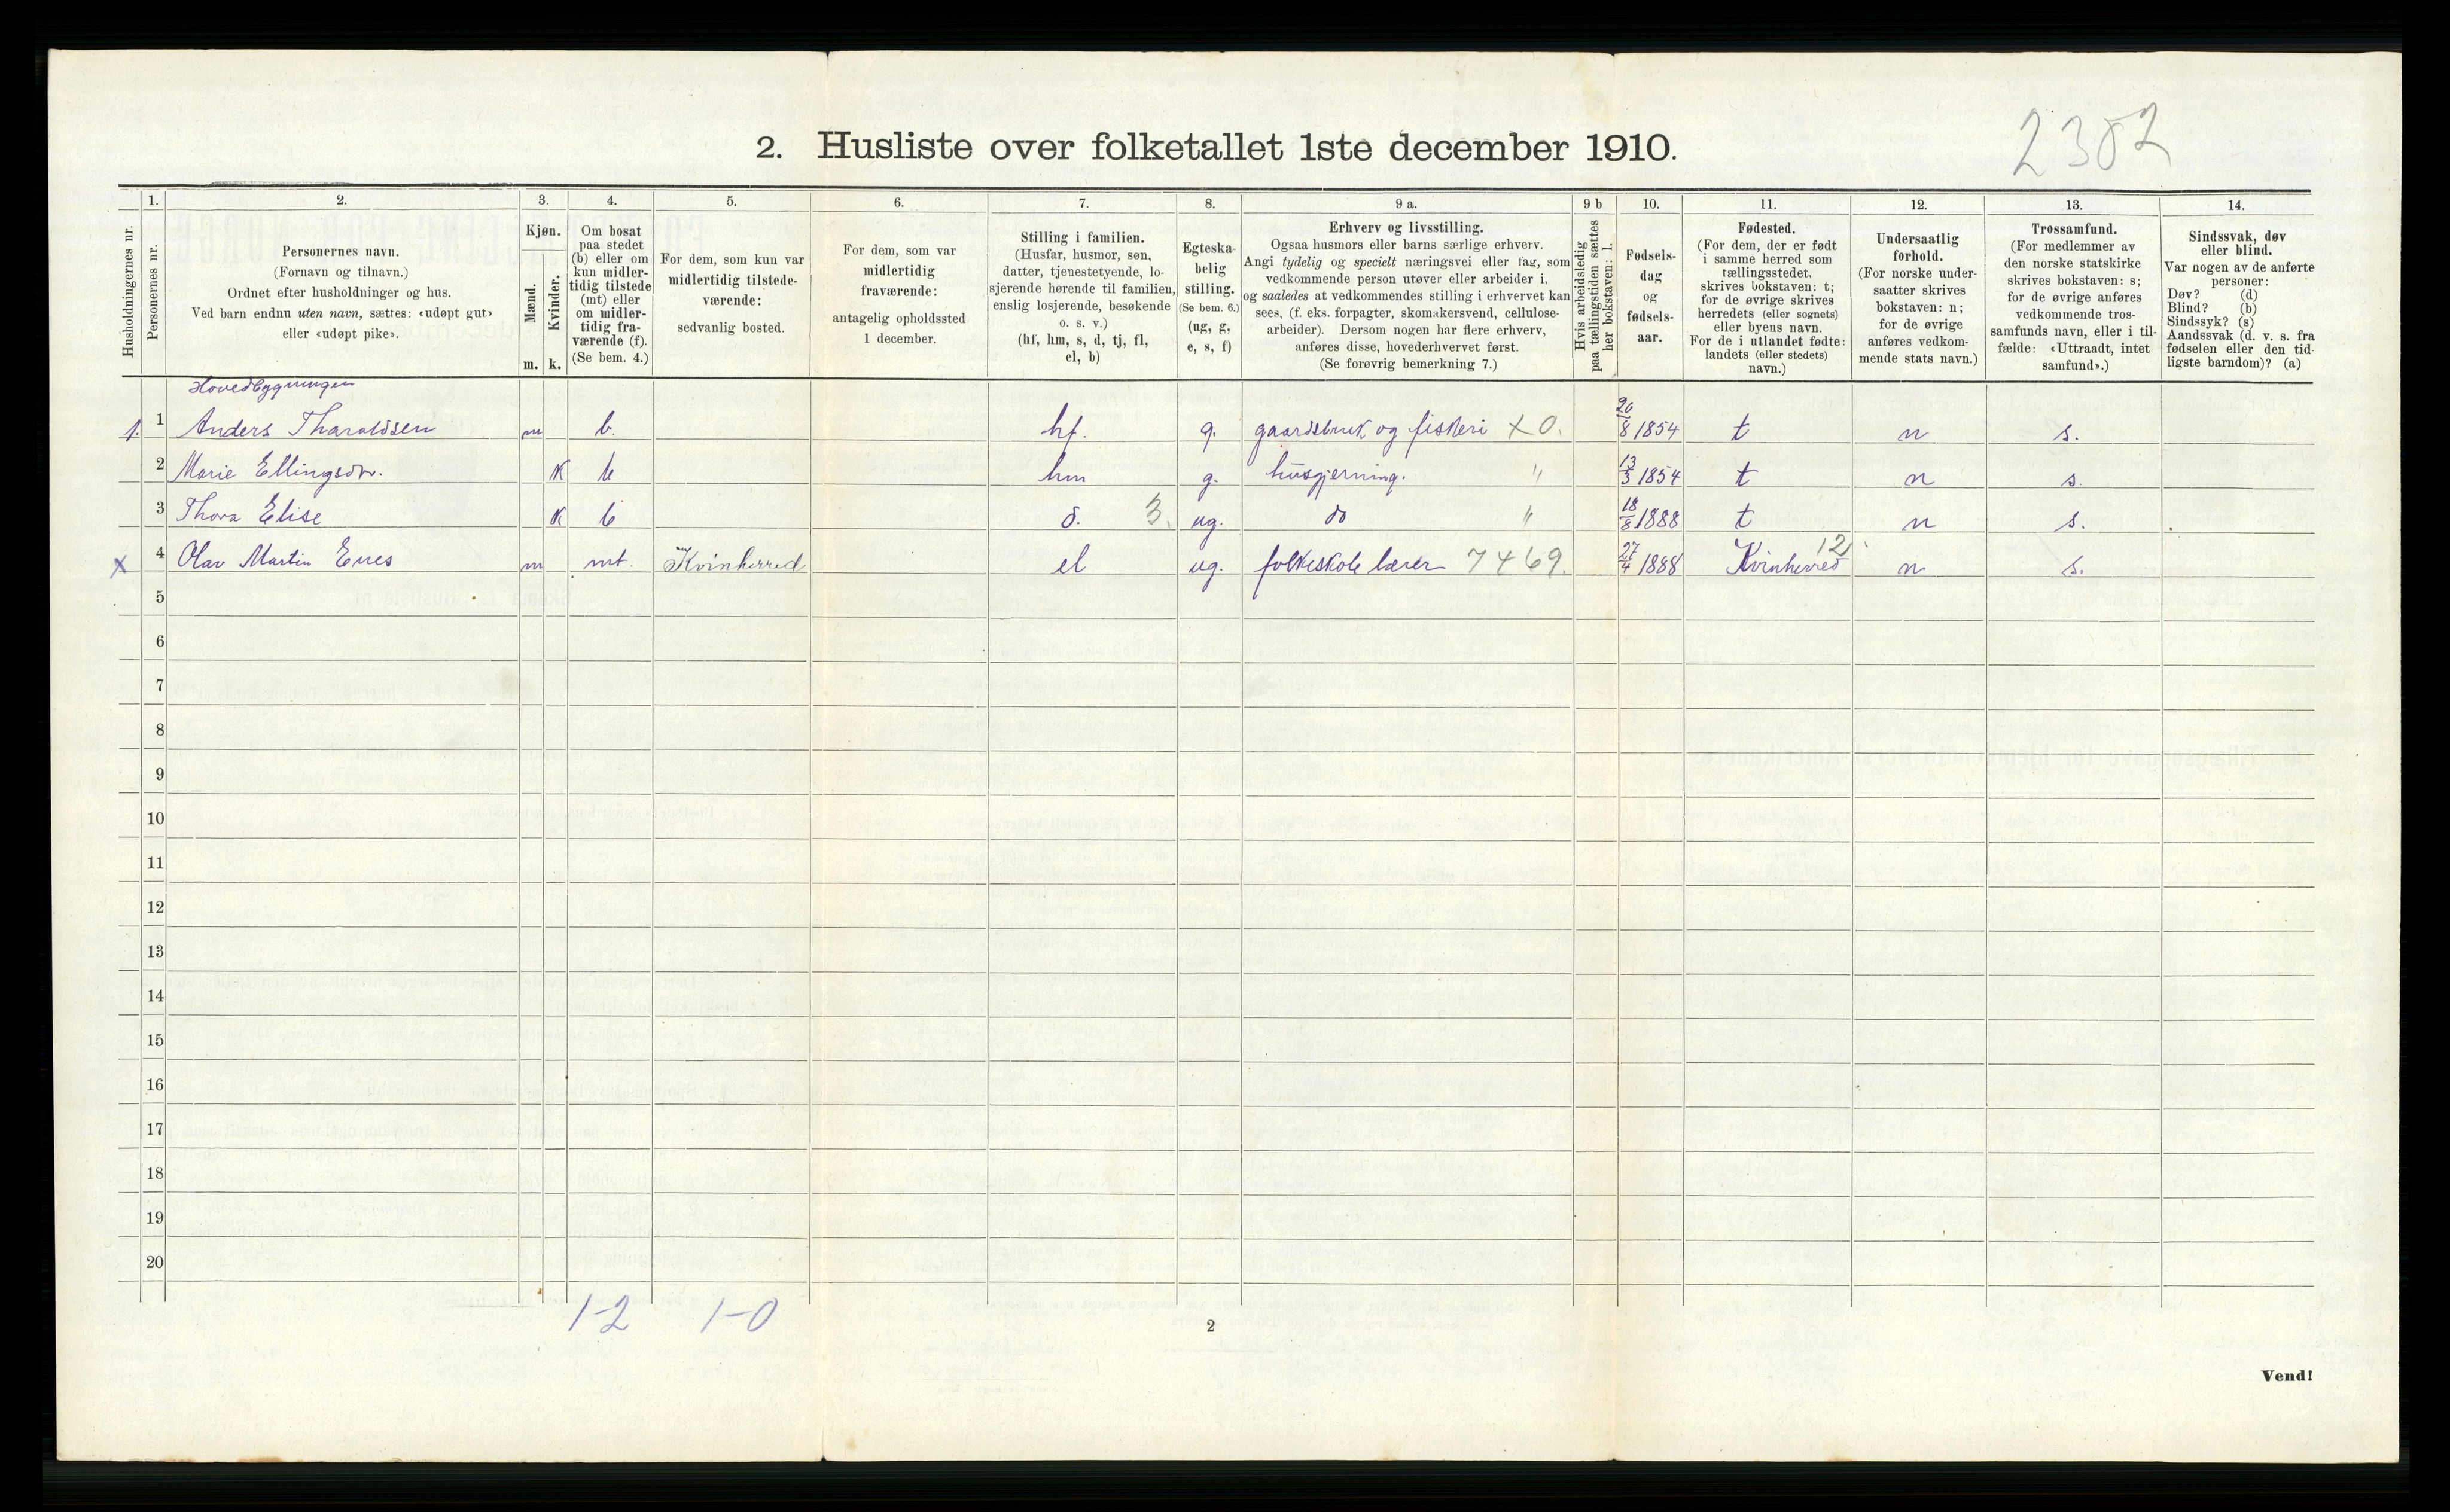 2382
2. Husliste over folketallet 1ste december 1910.
Husholdningernes nr.
1.
Personernes nr.
2.
Personernes navn.
(Fornavn og tilnavn.)
Ordnet efter husholdninger og hus.
Ved barn endnu uten navn, sættes: «udøpt gut»
eller «udøpt pike».
3.
Kjøn.
Mænd.
Kvinder.
m. k.
4.
Om bosat
paa stedet
(b) eller om
kun midler-
tidig tilstede
(mt) eller
om midler-
tidig fra-
værende (f).
(Se bem. 4.)
5.
For dem, som kun var
midlertidig tilstede-
værende:
sedvanlig bosted.
6.
For dem, som var
midlertidig
fraværende:
antagelig opholdssted
1 december.
7.
Stilling i familien.
(Husfar, husmor, søn,
datter, tjenestetyende, lo-
sjerende hørende til familien,
enslig losjerende, besøkende
o. s. v.)
(hf, hm, s, d, tj, fl,
el, b)
8.
Egteska-
belig
stilling.
(Se bem. 6.)
(ug, g,
e, s, f)
9 a.
Erhverv og livsstilling.
Ogsaa husmors eller barns særlige erhverv.
Angi tydelig og specielt næringsvei eller fag, som
vedkommende person utøver eller arbeider i,
og saaledes at vedkommendes stilling i erhvervet kan
sees, (f. eks. forpagter, skomakersvend, cellulose-
arbeider). Dersom nogen har flere erhverv,
anføres disse, hovederhvervet først.
(Se forøvrig bemerkning 7.)
9 b
Hvis arbeidsledig
paa tællingstiden sættes
her bokstaven: l.
10.
Fødsels-
dag
og
fødsels-
aar.
11.
Fødested.
(For dem, der er født
i samme herred som
tællingsstedet,
skrives bokstaven: t;
for de øvrige skrives
herredets (eller sognets)
eller byens navn.
For de i utlandet fødte:
landets (eller stedets)
navn.)
12.
Undersaatlig
forhold.
(For norske under-
saatter skrives
bokstaven: n;
for de øvrige
anføres vedkom-
mende stats navn.)
13.
Trossamfund.
(For medlemmer av
den norske statskirke
skrives bokstaven: s;
for de øvrige anføres
vedkommende tros-
samfunds navn, eller i til-
fælde: «Uttraadt, intet
samfund».)
14.
Sindssvak, døv
eller blind.
Var nogen av de anførte
personer:
Døv? (d)
Blind? (b)
Sindssyk? (s)
Aandssvak (d. v. s. fra
fødselen eller den tid-
ligste barndom)? (a)
Hovedbygningen
1. 1 Anders Tharaldsen m b. hf. g. gaardsbruk og fiskeri X 0. 20/8 1854 t n s.
2 Marie Ellingsdtr. k b hm g. husgjerning. " 13/3 1854 t n s.
3 Thora Elise k b d. 3. ug. do " 18/8 1888 t n s.
x 4 Olav Martin Enes m mt. Kvinherred el ug. folkeskole lærer 7469. 27/4 1888 Kvinherred 12 n s.
5
6
7
8
9
10
11
12
13
14
15
16
17
18
19
20
1-2 1-0
2
Vend!